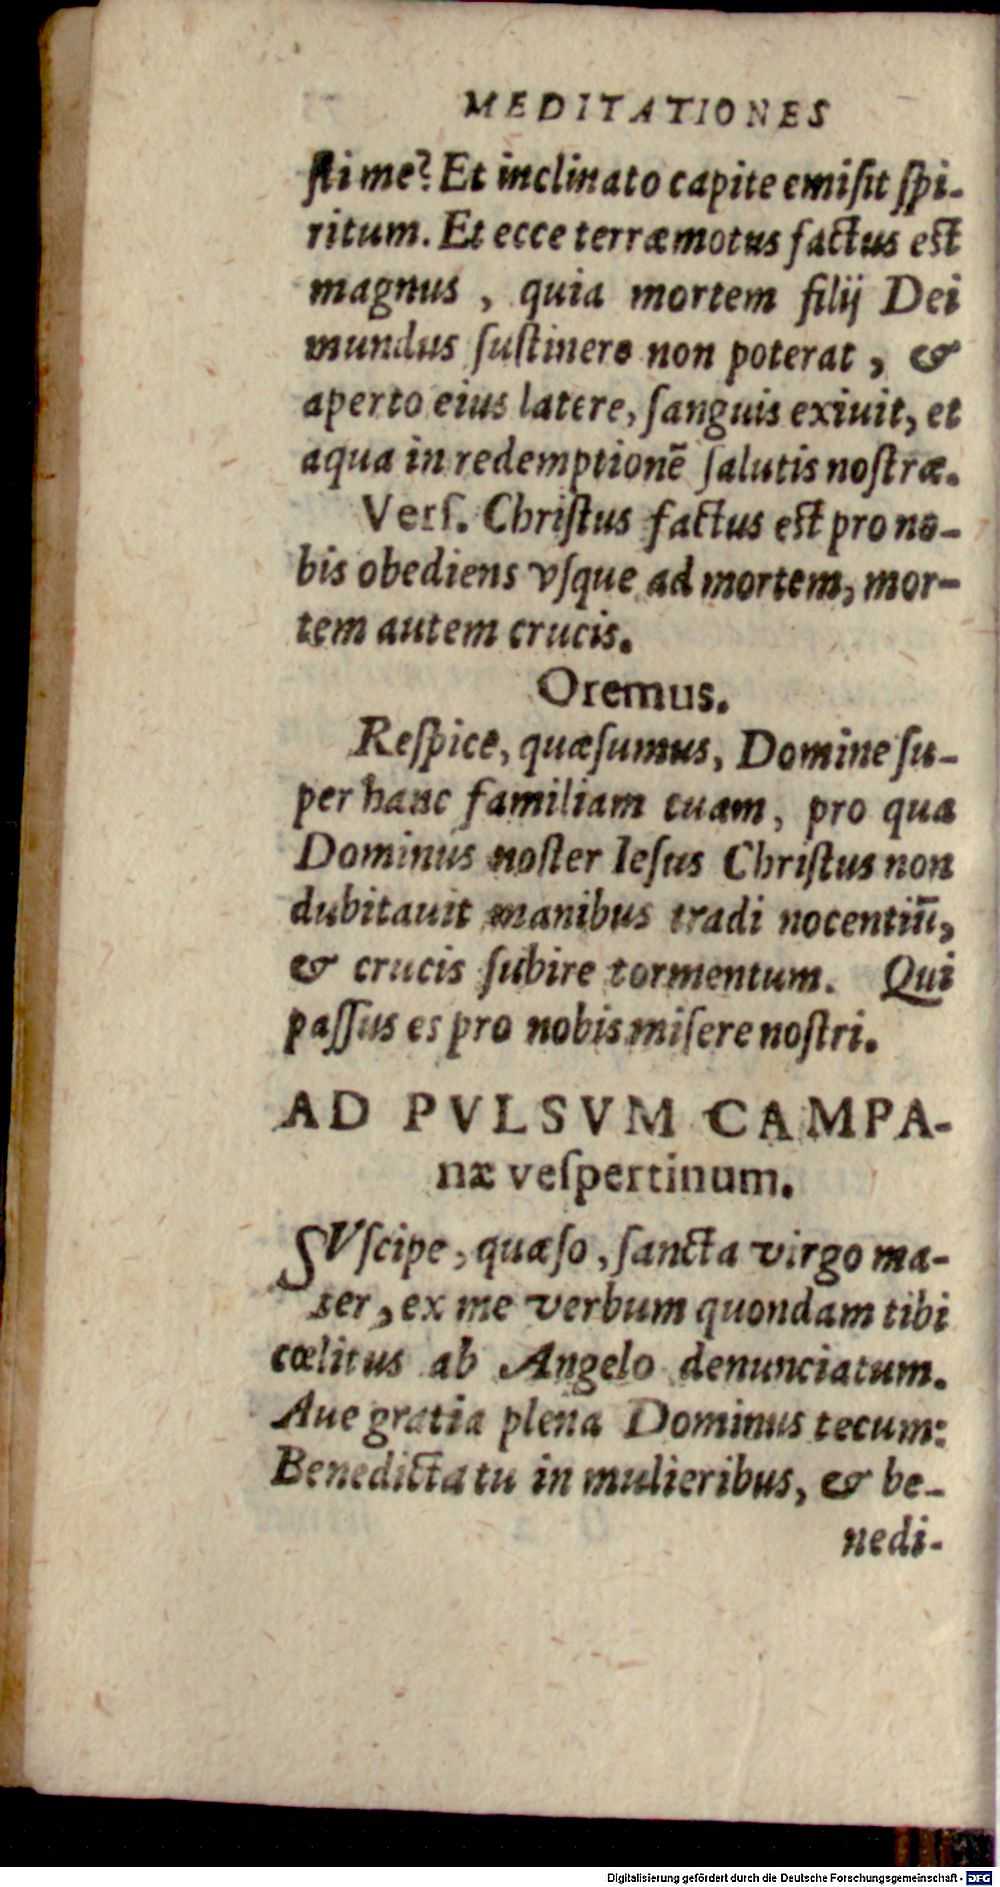 MEDITATIONES
ſti me? Et inclinato capite emiſit ſpi-
ritum. Et ecce terræmotus factus est
magnus, quia mortem filij Dei
mundus ſuſtinere non poterat, &
aperto eius latere, ſanguis exiuit, et
aqua in redemptionē ſalutis noſtræ.
Verſ. Chriſtus factus est pro no-
bis obediens vſque ad mortem, mor-
tem autem crucis.
Oremus.
Reſpice, quæſumus, Domine ſu-
per hanc familiam tuam, pro qua
Dominus noſter Ieſus Chriſtus non
dubitauit manibus tradi nocentiū,
& crucis ſubire tormentum. Qui
paſſus es pro nobis miſere noſtri.
AD PVLSVM CAMPA-
næ veſpertinum.
SVſcipe, quæſo, ſancta virgo ma-
ter, ex me verbum quondam tibi
cœlitus ab Angelo denunciatum.
Aue gratia plena Dominus tecum:
Benedicta tu in mulieribus, & be-
nedi-
Digitalisierung gefördert durch die Deutsche Forschungsgemeinschaft - DFG